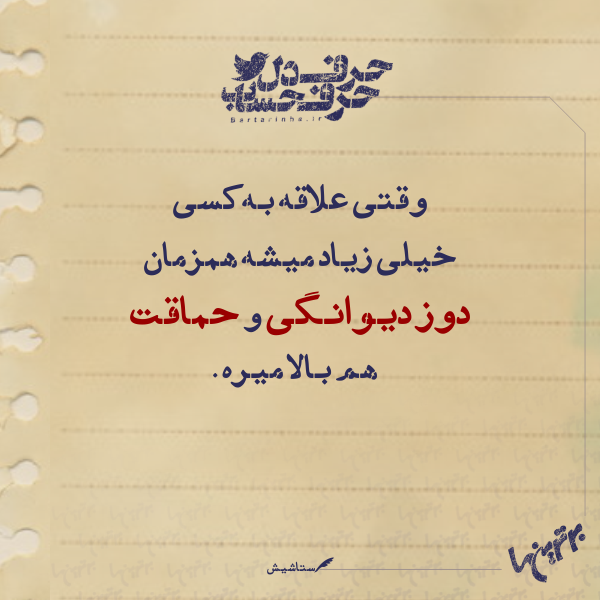 حرف دل
حرف حساب
Bartarinha.ir
وقتی علاقه به کسی
خیلی زیاد میشه همزمان
دوز دیوانگی و حماقت
هم بالا میره.
ستاشیش
برترینها